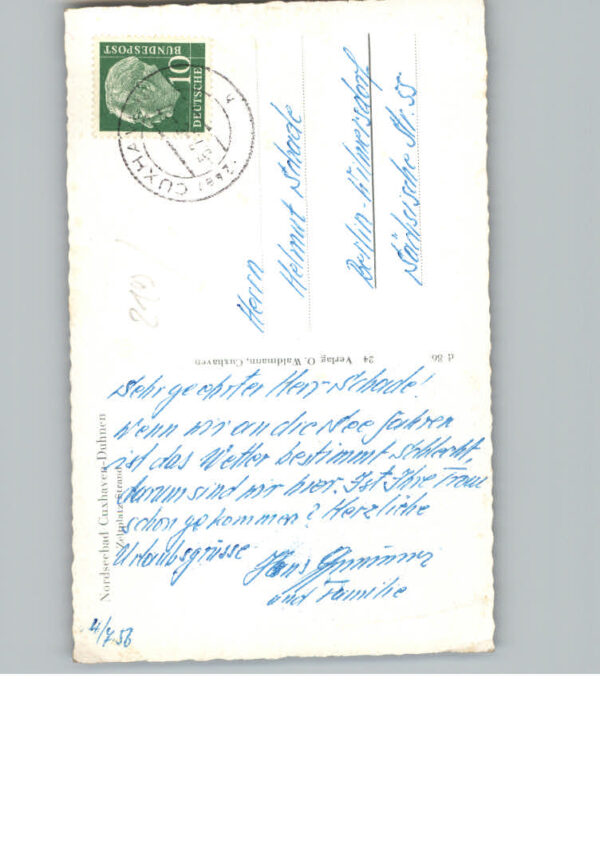 Sehr geehrter Herr Schade!
Wenn wir an die See fahren
ist das Wetter bestimmt schlecht,
darum sind wir hier. Ist Ihre Frau
schon gekommen? Herzliche
Urlaubsgrüsse
Hans
und Familie
4/7 56
Herrn
Helmut Schade
Berlin-Wilmersdorf
Sächsische Str. 55
Nordseebad Cuxhaven-Duhnen
Zeltplatz Strand
24 Verlag O. Waldmann, Cuxhaven
d 86
DEUTSCHE
BUNDESPOST
10
CUXHAVEN
210